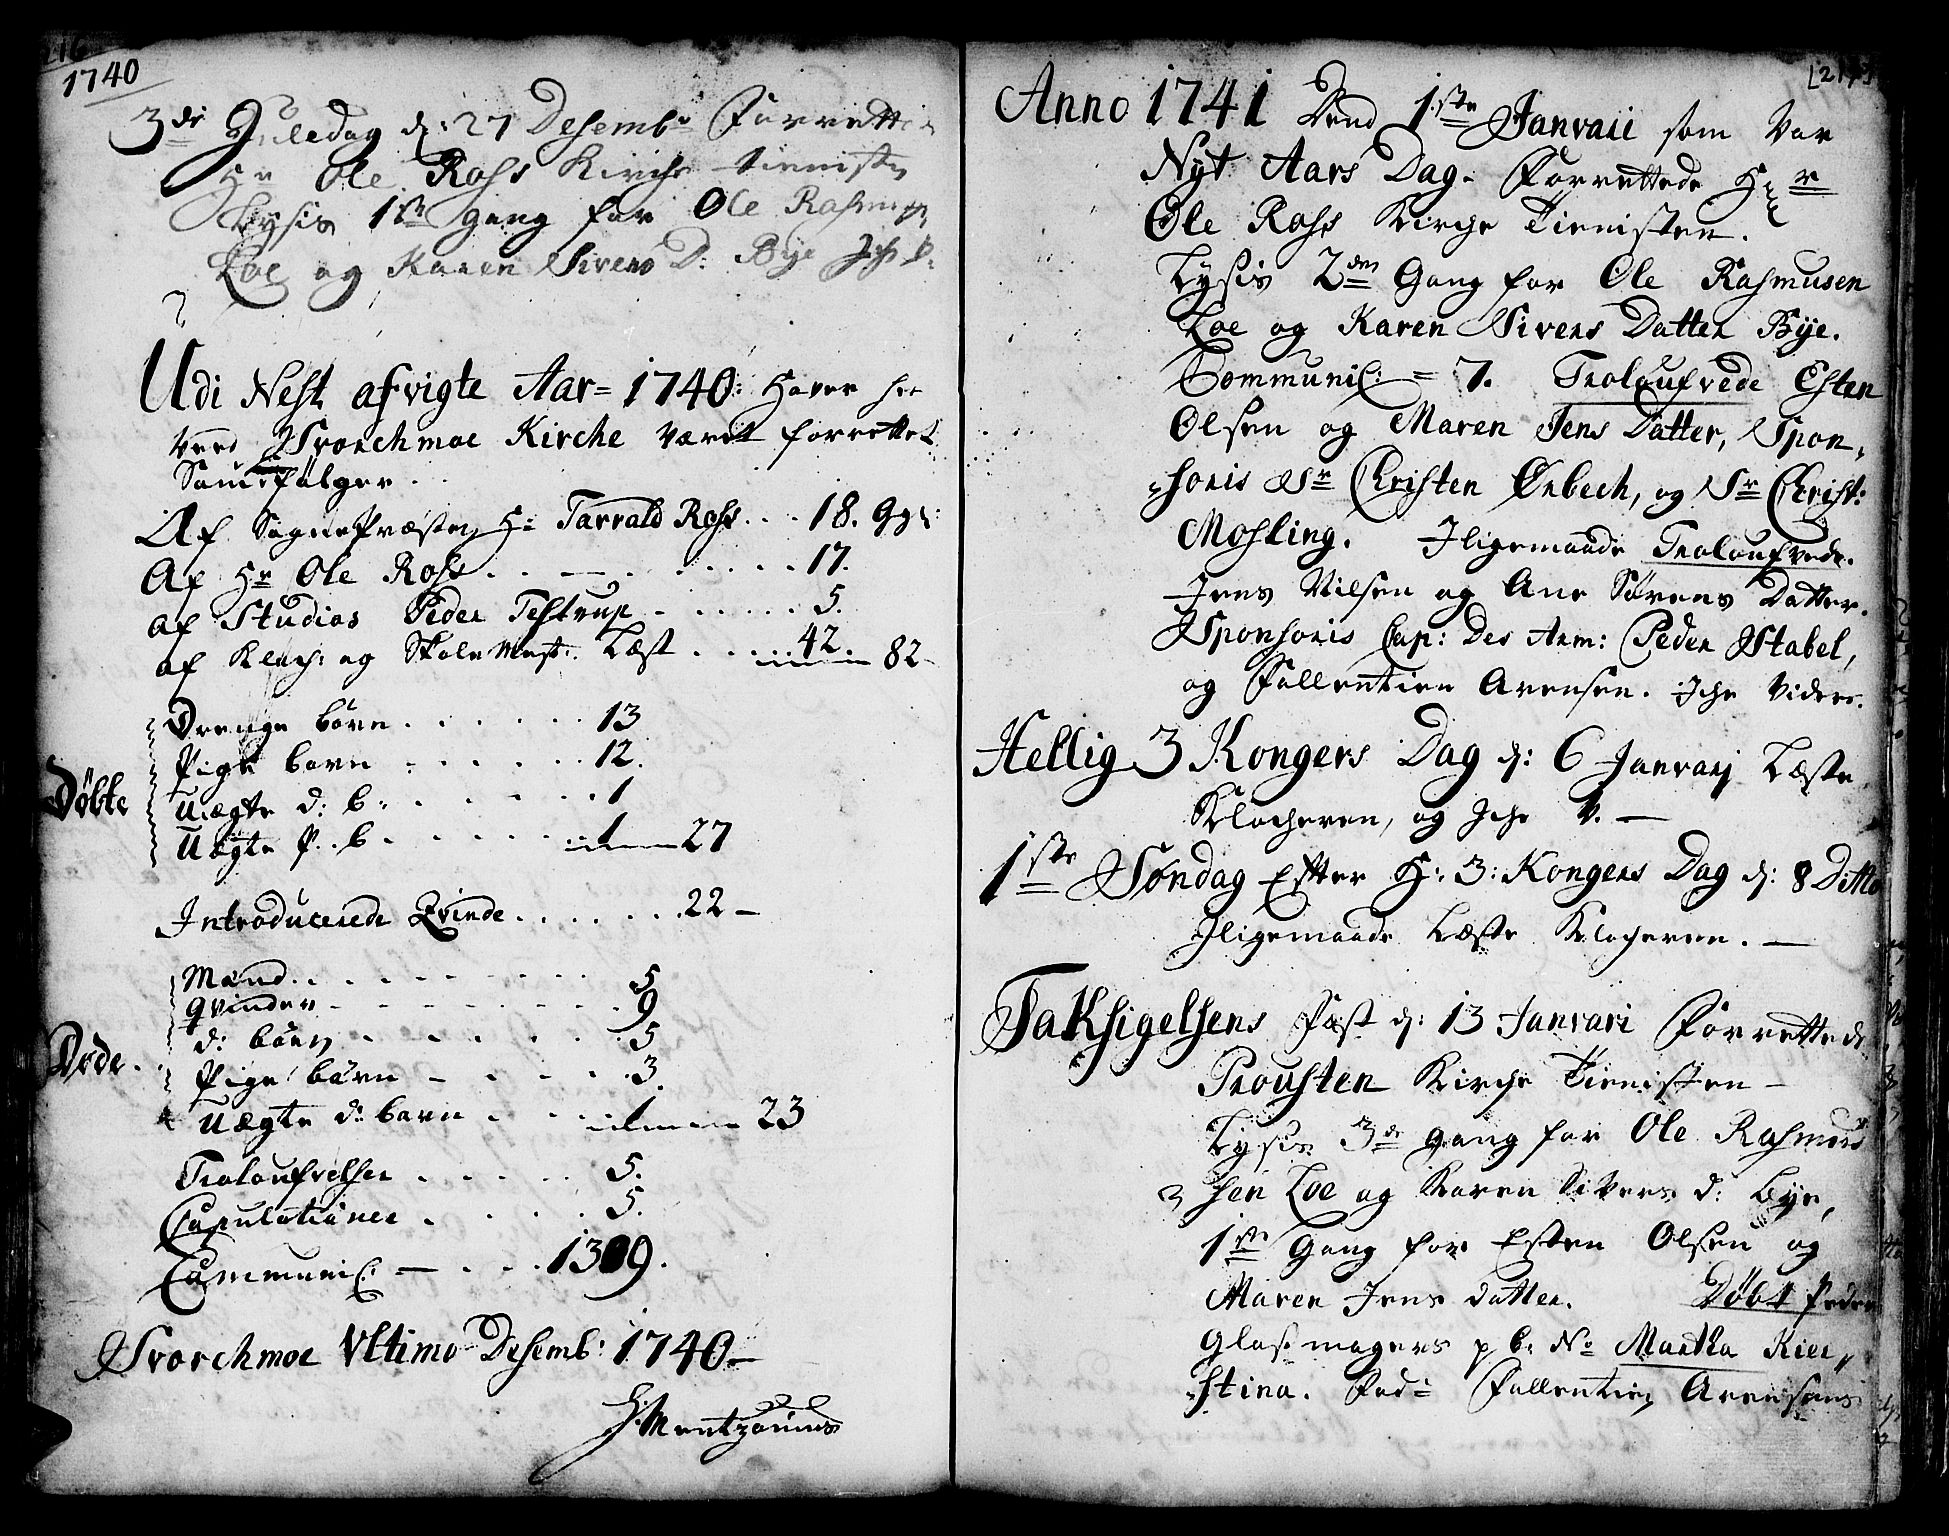 216
1740
3de Juledag d: 27 Desembr Forrettede
Hr Ole Ross Kirche tienisten
Lysis 1ste gang for Ole Rasmus:
Loe og Karen Sivers D: Bye
Udi Nest afvigte Aar = 1740: Haver her
Svorchmoe Kirche Været forrettet
Som følger.
Af SognePræsten H: Tarrald Ross . . . 18. gg:
Af Hr Ole Ross . . . . . . . 17.
af Studios Peder Testrup . . . . . . 5.
af Kloch: og Skole Mest: Læst . . . . 42. 82
Døbte
Drenge börn . . . . . . 13
Pige börn . . . . . . 12.
Uægte d: b: . . . . . . 1
Uægte P. b . . . . . . 1 27
Introducerede Qvinde . . . . . . . 22 —
Døde.
Mænd . . . . . . . . 5
qvinder . . . . . . . . 9
d: börn . . . . . . . 5
Pige börn . . . . . 3.
Uægte d: barn . . . . 1 23
Troloufvelser . . . . . 5.
Copulationer . . . . . 5.
Communic: — . . . 1309.
Svorchmoe Ultimo Desemb: 1740 —
Mentzonius
[217]
Anno 1741 Dend 1ste Janvari som Var
Nyt Aars Dag. Forrettede Hr
Ole Ross Kirche Tienisten.
Lysis 2den Gang for Ole Rasmusen
Loe og Karen Sivers Datter Bye.
Communic: = 7. Troloufvede Esten
Olsen og Maren Jens Datter, Spon„
„soris Sr Christen Ørbech, og Sr Christ:
Mosling. Jligemaade Troloufvede.
Jens Nilsen og Ane Sørens Datter.
Sponsoris Cap: Des Arm: Peder Stabel,
og Follentien Arensen. Iche Videre.
Hellig 3 Kongers Dag d: 6 Janvarij Læste
Klocheren, og Iche V. —
1ste Søndag Efter H: 3: Kongers Dag d: 8 Ditto
Jligemaade Læste Klocheren. —
Taksigelsens Fæst d: 13 Janvari Forrettede
Prousten Kirche Tienisten —
Lysis 3de gang for Ole Rasmus
sen Loe og Karen Sivers d: Bye,
1ste Gang for Esten Olsen og
Maren Jens datter. Døbt Peder
Glasmagers p b: No Martha Kier„
„stina. Fad: Follentien Arensens